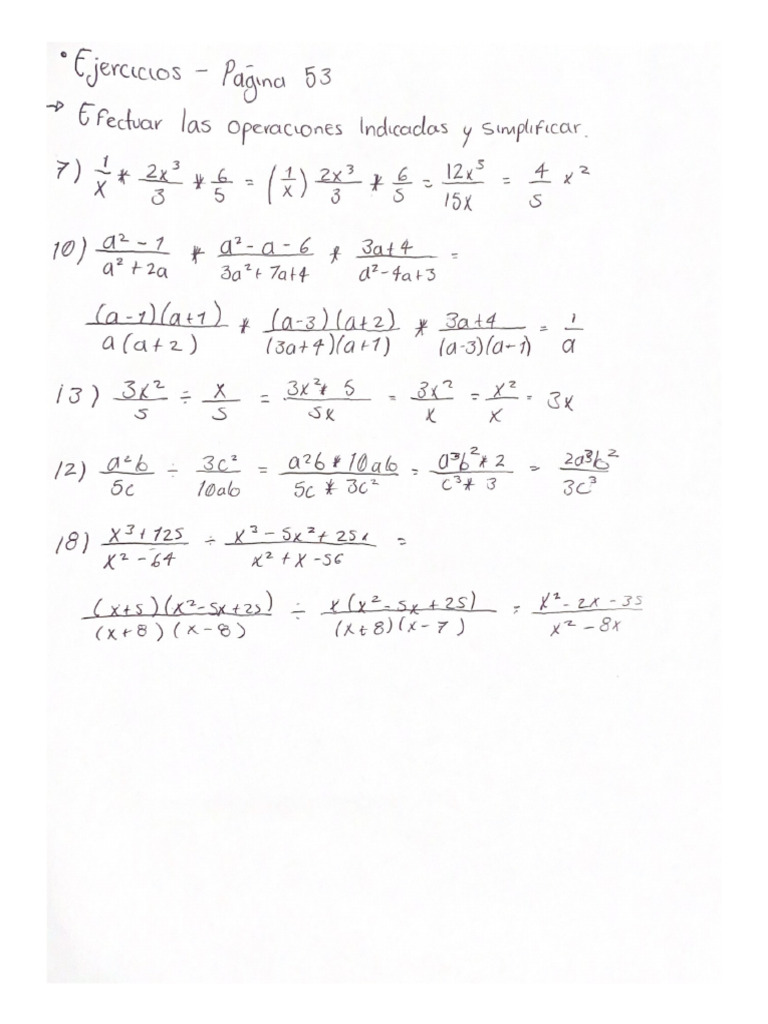 • Ejercicios - Página 53
→ Efectuar las operaciones Indicadas y simplificar.
7) 1/x * 2x³/3 * 6/5 = (1/x) 2x³/3 * 6/5 = 12x³/15x = 4/5 x²
10) a²-1/a²+2a * a²-a-6/3a²+7a+4 * 3a+4/a²-4a+3 =
(a-1)(a+1)/a(a+2) * (a-3)(a+2)/(3a+4)(a+1) * 3a+4/(a-3)(a-1) = 1/a
13) 3x²/5 ÷ x/5 = 3x²* 5/5x = 3x²/x = x²/x = 3x
12) a²b/5c ÷ 3c²/10ab = a²b*10ab/5c * 3c² = a³b²*2/c³* 3 = 2a³b²/3c³
18) x³+125/x²-64 ÷ x³-5x²+25x/x²+x-56 =
(x+5)(x²-5x+25)/(x+8)(x-8) ÷ x(x²-5x+25)/(x+8)(x-7) = x²-2x-35/x²-8x